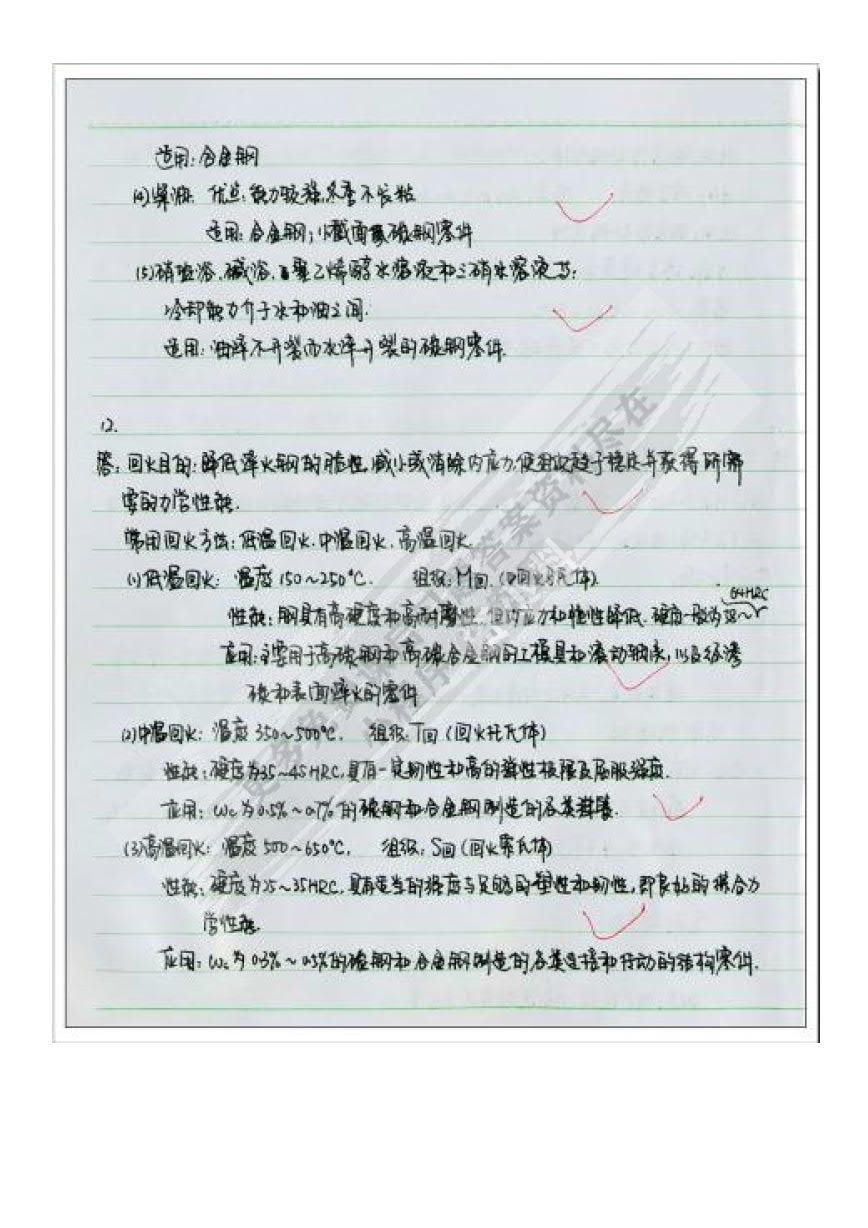 适用:合金钢
(4)柴油: 优点:能力较强,冬季不长粘
适用:合金钢;小截面碳钢零件
(5)硝盐浴、碱浴、聚乙烯醇水溶液和三硝水溶液等:
冷却能力介于水和油之间.
适用:油淬不开裂而水淬开裂的碳钢零件.
12.
答:回火目的:降低淬火钢的脆性,减小或消除内应力,使组织趋于稳定并获得所需
要的力学性能.
常用回火方法:低温回火、中温回火、高温回火.
(1)低温回火: 温度150~250°C. 组织:M回 (回火马氏体).
64HRC
性能:钢具有高硬度和高耐磨性,但内应力和脆性降低.硬度一般为58~
应用:主要用于高碳钢和高碳合金钢的工模具和滚动轴承,以及经渗
碳和表面淬火的零件
(2)中温回火: 温度350~500°C, 组织:T回 (回火托氏体)
性能:硬度为35~45HRC,具有一定韧性和高的弹性极限及屈服强度.
应用:Wc为0.5%~0.7%的碳钢和合金钢制造的各类弹簧.
(3)高温回火: 温度500~650°C, 组织:S回 (回火索氏体)
性能:硬度为25~35HRC,具有适当的强度与足够的塑性和韧性,即良好的综合力
学性能.
应用:Wc为0.3%~0.5%的碳钢和合金钢制造的各类连接和传动的结构零件.